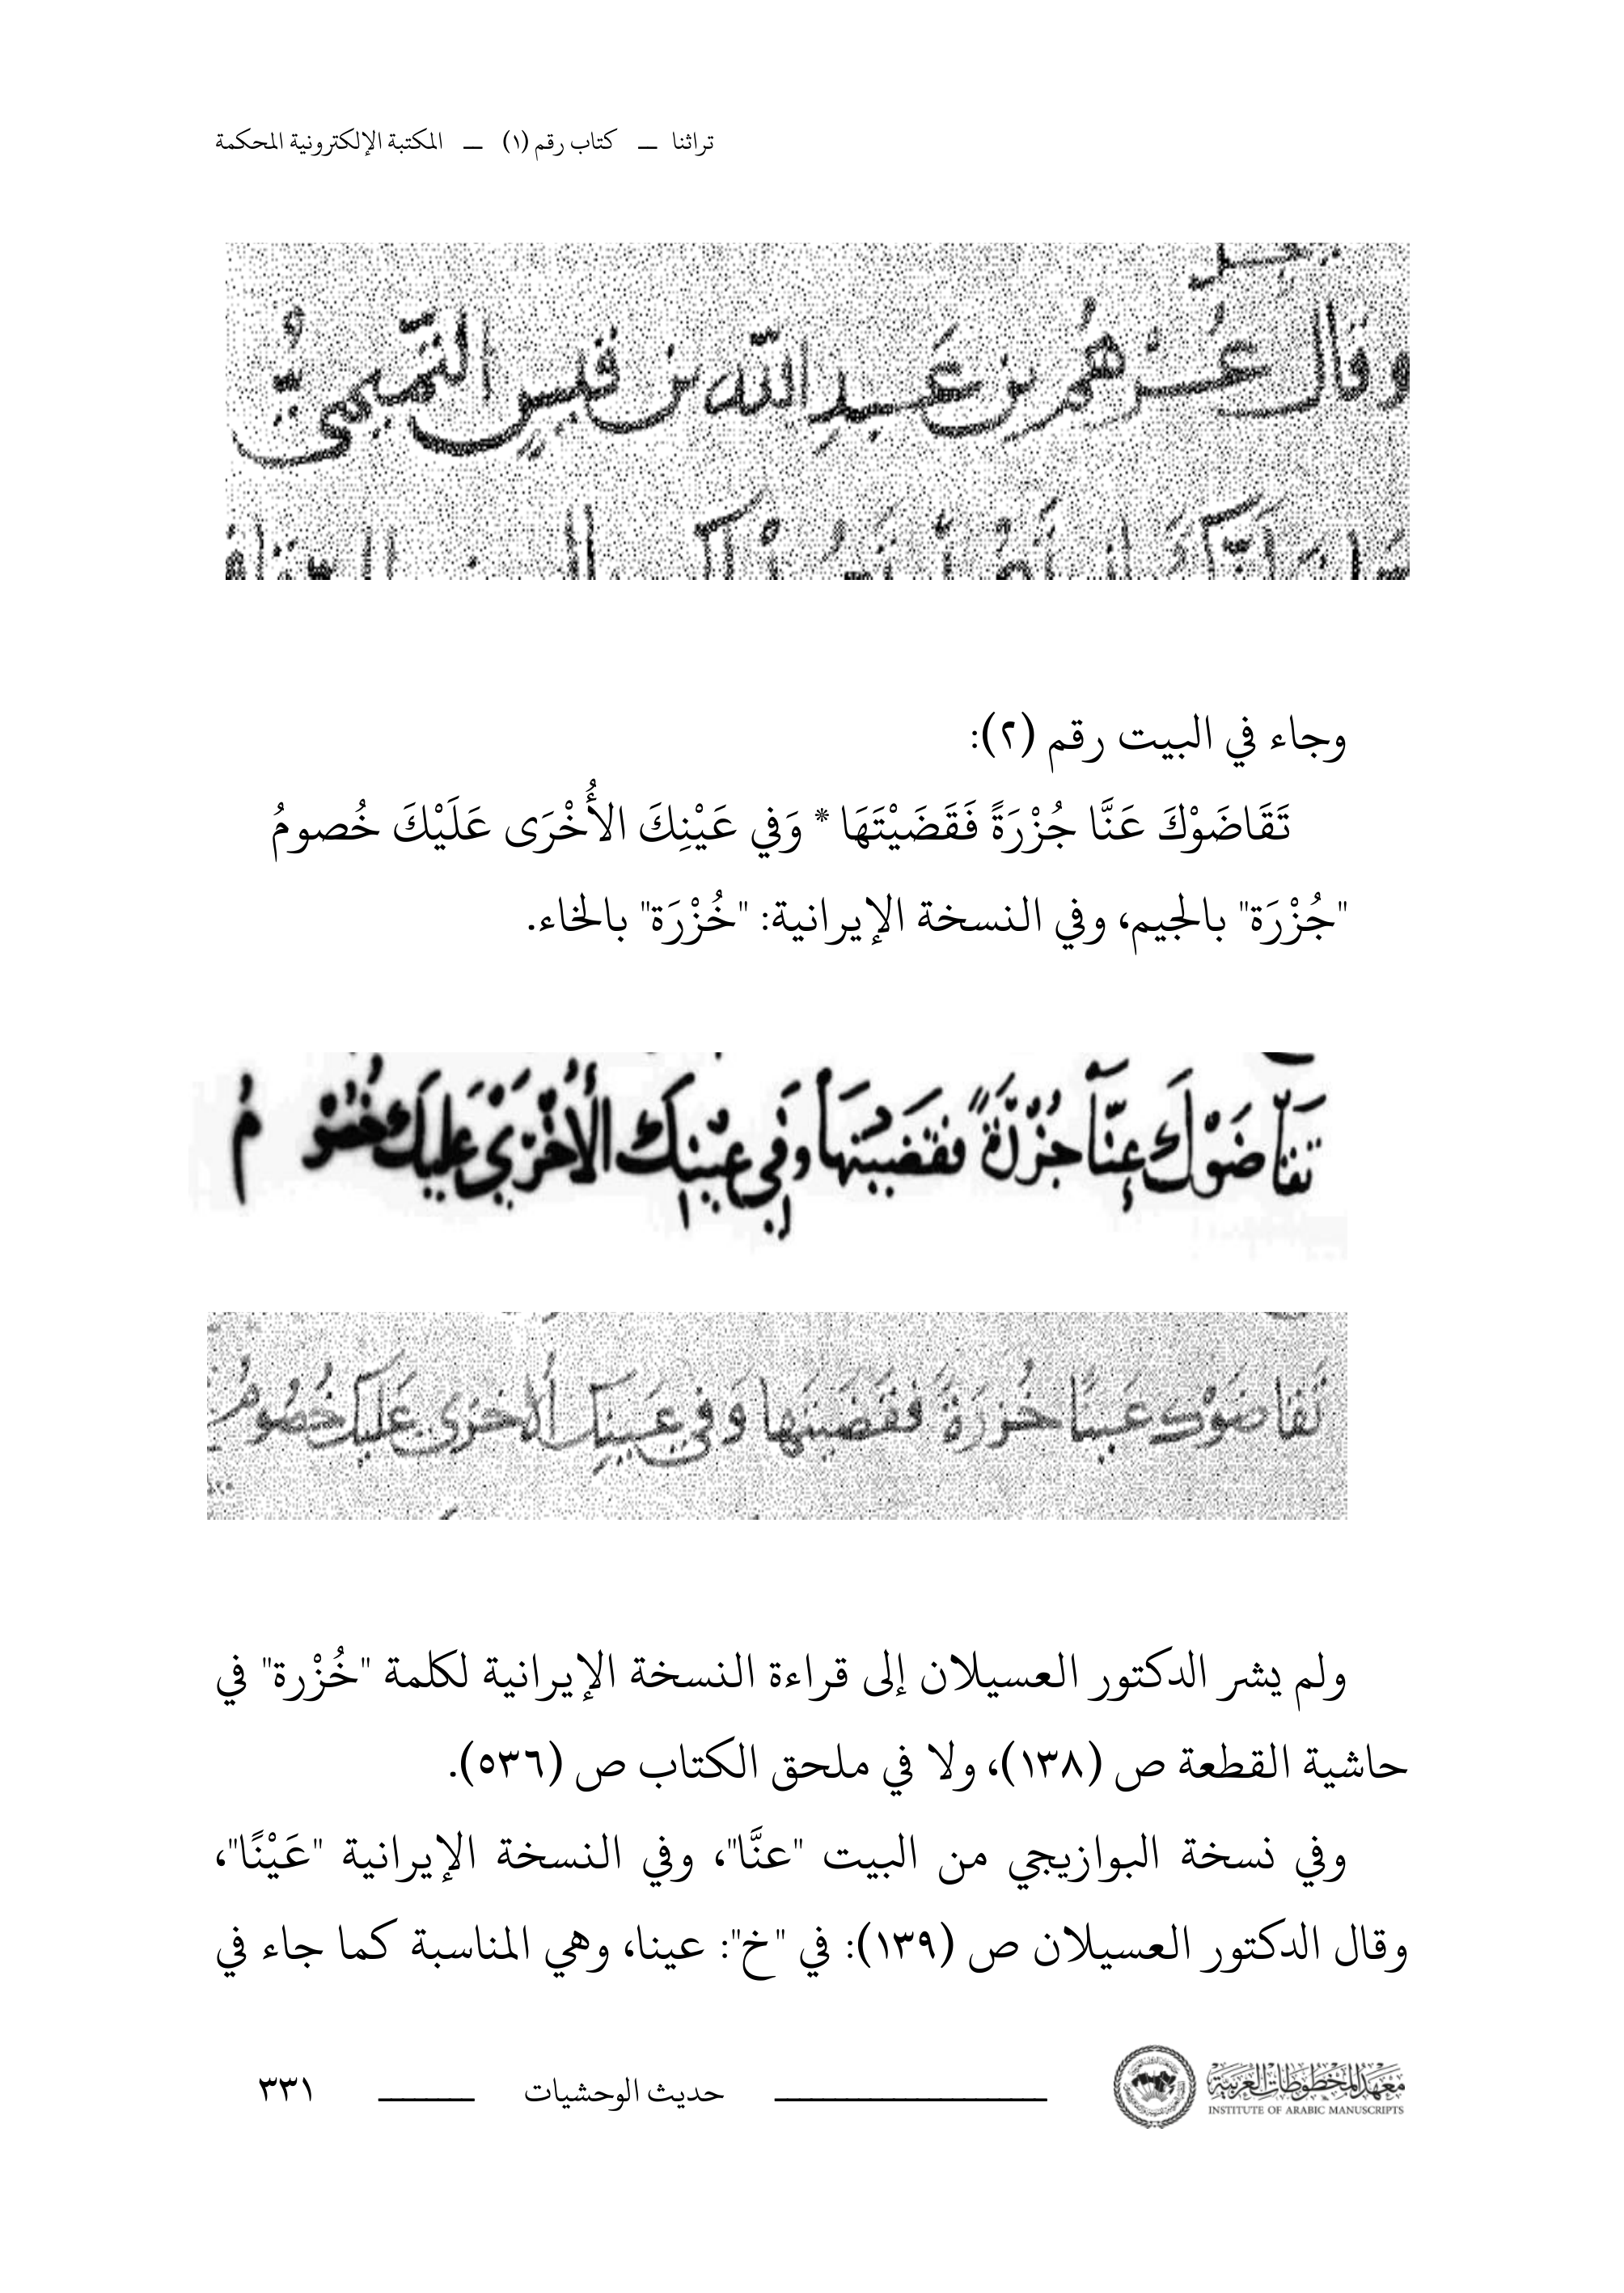 تراثنا — كتاب رقم (١) — المكتبة الإلكترونية المحكمة
وقال عز هم بن عبد الله بن قيس التميمي
وجاء في البيت رقم (٢):
تَقَاضَوْكَ عَنَّا جُزْرَةً فَقَضَيْتَهَا * وَفي عَيْنِكَ الأُخْرَى عَلَيْكَ خُصومُ
"جُزْرَة" بالجيم، وفي النسخة الإيرانية: "خُزْرَة" بالخاء.
تقاضَوْكَ عنّا جُزْرَةً فقضيتهَا وفي عينك الأُخْرَي عليكَ خُصُومُ
تَقاضَوْك عَينًا خُزرَةً فَقَضَيتَها وَفي عَينِك الأُخرى عَلَيك خُصُومُ
ولم يشر الدكتور العسيلان إلى قراءة النسخة الإيرانية لكلمة "خُزْرة" في
حاشية القطعة ص (١٣٨)، ولا في ملحق الكتاب ص (٥٣٦).
وفي نسخة البوازيجي من البيت "عنَّا"، وفي النسخة الإيرانية "عَيْنًا"،
وقال الدكتور العسيلان ص (١٣٩): في "خ": عينا، وهي المناسبة كما جاء في
معهد المخطوطات العربية
INSTITUTE OF ARABIC MANUSCRIPTS
حديث الوحشيات
٣٣١